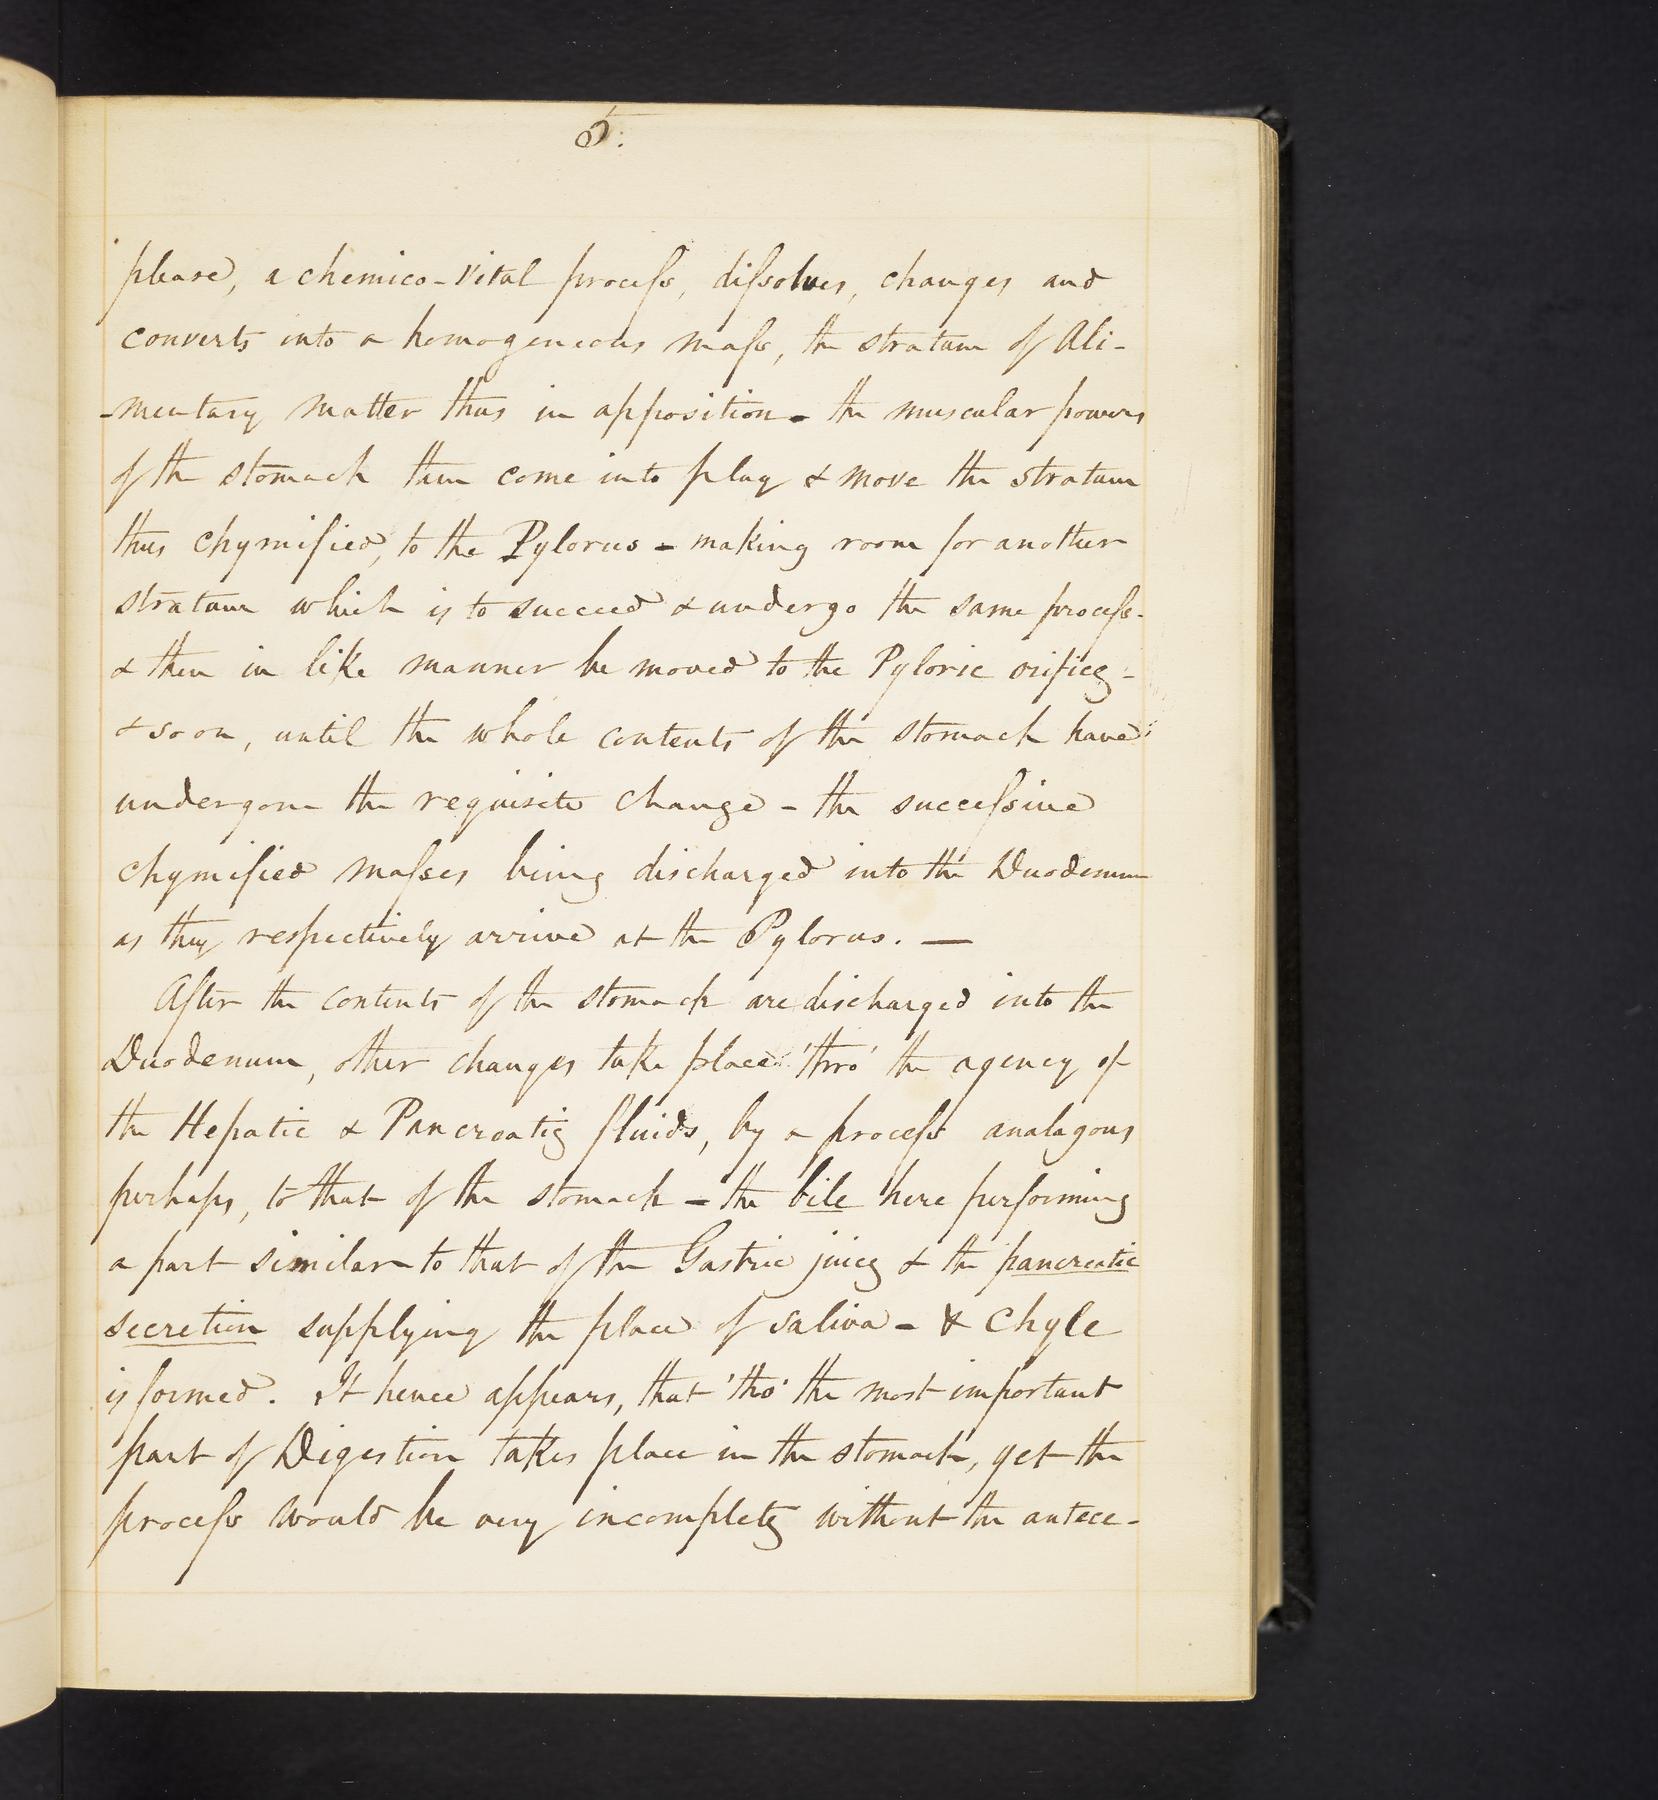 5.
please, a chemico-vital process, dissolves, changes and
converts into a homogeneous mass, the stratum of Ali-
-mentary matter thus in apposition - the muscular powers
of the stomach then come into play & move the stratum
thus chymified, to the Pylorus - making room for another
stratum which is to succeed & undergo the same process -
& then in like manner be moved to the Pyloric orifice -
& so on, until the whole contents of the stomach have
undergone the requisite change - the successive
chymified masses being discharged into the Duodenum
as they respectively arrive at the Pylorus. —
After the contents of the stomach are discharged into the
Duodenum, other changes take place 'thro' the agency of
the Hepatic & Pancreatic fluids, by a process analagous
perhaps, to that of the stomach - the bile here performing
a part similar to that of the Gastric juice & the pancreatic
secretion supplying the place of saliva - & Chyle
is formed. It hence appears, that 'tho' the most important
part of Digestion takes place in the stomach, yet the
process would be very incomplete without the antece-